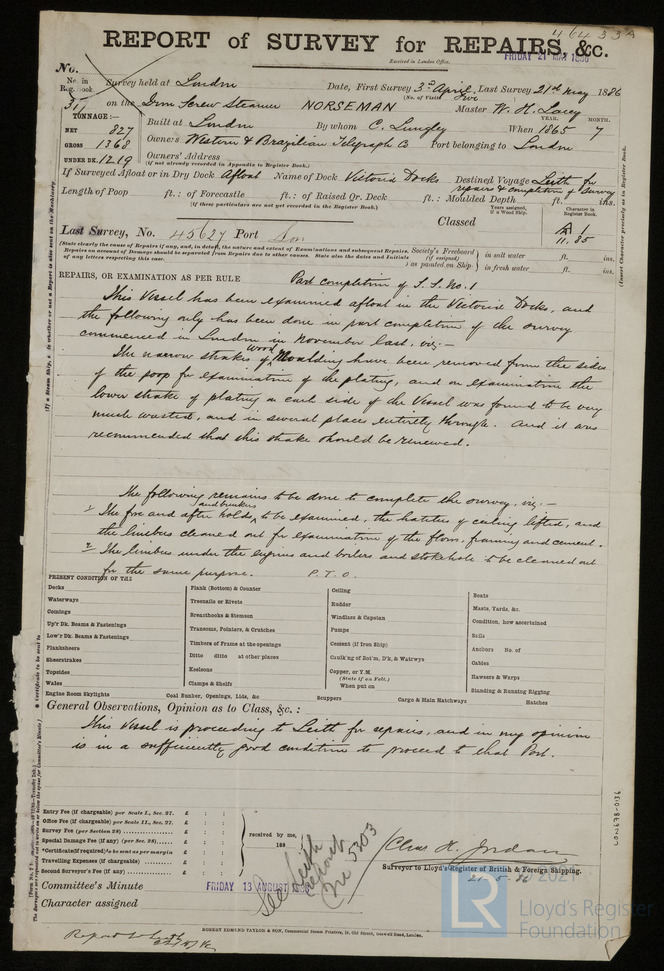 46433A
REPORT of SURVEY for REPAIRS, &c.
Received in London Office,
FRIDAY 21 MAY 1886
No.
No. in Reg. Book.
Survey held at London Date, First Survey 3rd April, Last Survey 21st May 1886
(No. of Visits Five
311 on the Iron Screw Steamer NORSEMAN Master W. H. Lacey
TONNAGE:—
NET 827
GROSS 1368
UNDER DK. 1219
YEAR. MONTH.
Built at London By whom C. Lungley When 1865 7
Owners Western & Brazilian Telegraph Co Port belonging to London
Owners' Address
(If not already recorded in Appendix to Register Book.)
If Surveyed Afloat or in Dry Dock Afloat Name of Dock Victoria Docks Destined Voyage Leith for repairs & completion of Survey
Length of Poop ft.: of Forecastle ft.: of Raised Qr. Deck ft.: Moulded Depth ft. ins.
(If these particulars are not yet recorded in the Register Book.)
Years assigned, if a Wood Ship.
Character in Register Book.
Classed
A 1
11.85
Last Survey, No. 45627 Port Lon
(State clearly the cause of Repairs if any, and, in detail, the nature and extent of Examinations and subsequent Repairs.
Repairs on account of Damage should be separated from Repairs due to other causes. State also the dates and Initials
of any letters respecting this case.
Society's Freeboard (if assigned) as painted on Ship
in salt water ft. ins.
in fresh water ft. ins.
REPAIRS, OR EXAMINATION AS PER RULE Part completion of S.S. No. 1
This Vessel has been examined afloat in the Victoria Docks, and
the following only has been done in part completion of the survey
commenced in London in November last, viz:—
The narrow strakes of wood Moulding have been removed from the sides
of the poop for examination of the plating, and on examination the
lower strake of plating on each side of the Vessel was found to be very
much wasted, and in several places entirely through. And it was
recommended that this strake should be renewed.
The following remains to be done to complete the survey, viz:—
1 The fore and after holds and bunkers to be examined, the hatches of ceiling lifted, and
the limbers cleaned out for examination of the floors, framing and cement.
2 The limbers under the engines and boilers and stokehole to be cleaned out
for the same purpose. P.T.O.
PRESENT CONDITION OF THE
Decks
Waterways
Comings
Up'r Dk. Beams & Fastenings
Low'r Dk. Beams & Fastenings
Planksheers
Sheerstrakes
Topsides
Wales
Engine Room Skylights
Plank (Bottom) & Counter
Treenails or Rivets
Breasthooks & Stemson
Transoms, Pointers, & Crutches
Timbers of Frame at the openings
Ditto ditto at other places
Keelsons
Clamps & Shelfs
Coal Bunker, Openings, Lids, &c
Ceiling
Rudder
Windlass & Capstan
Pumps
Cement (if Iron Ship)
Caulk'ng of Bot'm, D'k, & Watrwys
Copper, or Y.M.
(State if on Felt.)
When put on
Scuppers
Cargo & Main Hatchways
Boats
Masts, Yards, &c.
Condition, how ascertained
Sails
Anchors No. of
Cables
Hawsers & Warps
Standing & Running Rigging
Hatches
General Observations, Opinion as to Class, &c.:
This Vessel is proceeding to Leith for repairs, and in my opinion
is in a sufficiently good condition to proceed to that Port.
Entry Fee (if chargeable) per Scale I., Sec. 27. £ : :
Office Fee (if chargeable) per Scale II., Sec. 27. £ : :
Survey Fee (per Section 28) £ : :
Special Damage Fee (if any) (per Sec. 28) £ : :
*Certificate (if required) to be sent as per margin £ : :
Travelling Expenses (if chargeable) £ : :
Second Surveyor's Fee (if any) £ : :
received by me,
188
See Leith Report No 5303
Chas H. Jordan
Surveyor to Lloyd's Register of British & Foreign Shipping.
21-5-86
Committee's Minute FRIDAY 13 AUGUST 1886
Character assigned
ROBERT EDMUND TAYLOR & SON, Commercial Steam Printers, 19, Old Street, Goswell Road, London.
Report to Leith
LON678-0136
(Insert Character precisely as in Register Book.
LR
© 2021
Lloyd's Register
Foundation